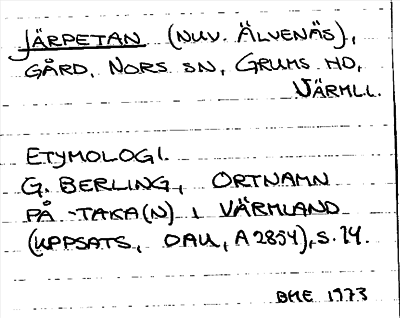 JÄRPETAN (NUV. ÄLVENÄS),
GÅRD, NORS SN, GRUMS HD,
VÄRML.
ETYMOLOGI.
G. BERLING, ORTNAMN
PÅ -TAKA(N) I VÄRMLAND
(UPPSATS, DAU, A2854), S. 14.
BME 1973